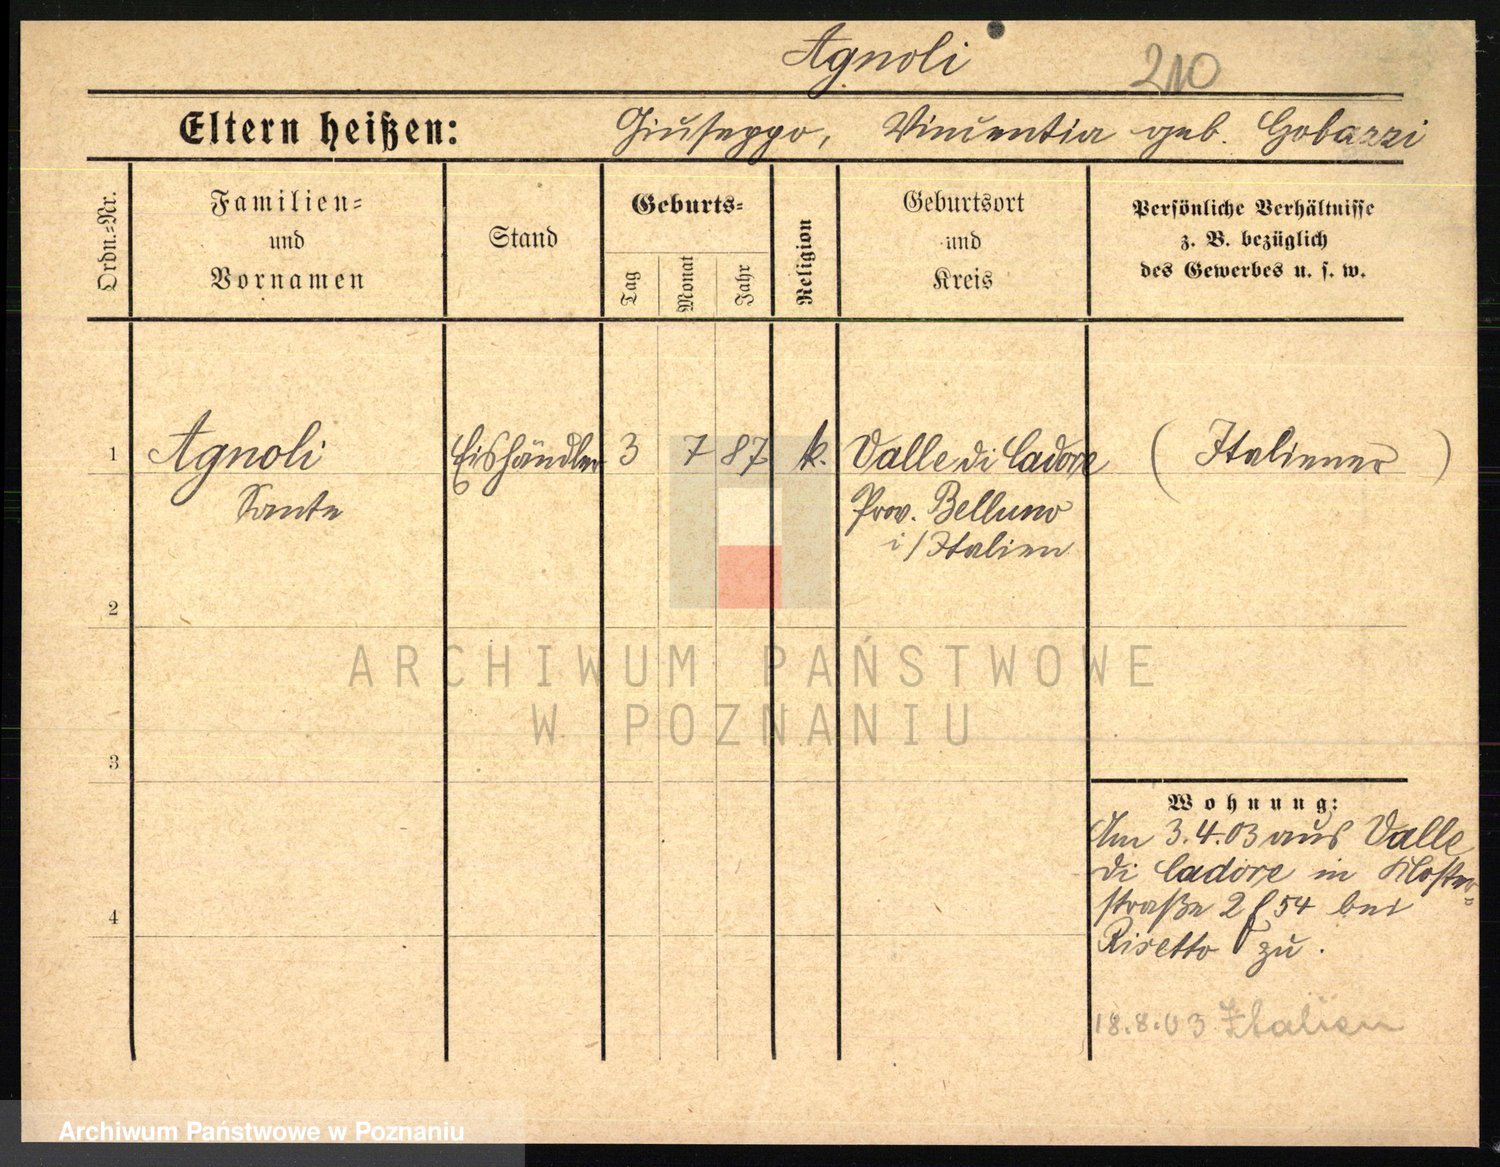 Agnoli 210
Eltern heißen: Giuseppo, Vincentia geb. Gobazzi
Ordn.=Nr.
Familien=
und
Vornamen
Stand
Geburts=
Tag
Monat
Jahr
Religion
Geburtsort
und
Kreis
Persönliche Verhältnisse
z. B. bezüglich
des Gewerbes u. s. w.
1 Agnoli Eishändler 3 7 87 k. Valle di Cadore (Italiener)
Sante Prov. Belluno
i/Italien
2
ARCHIWUM PAŃSTWOWE
W POZNANIU
3
Wohnung:
Am 3.4.03 aus Valle
di Cadore in Kloster=
straße 2 54 bei
4
Risetto zu.
18.8.03 Italien
Archiwum Państwowe w Poznaniu